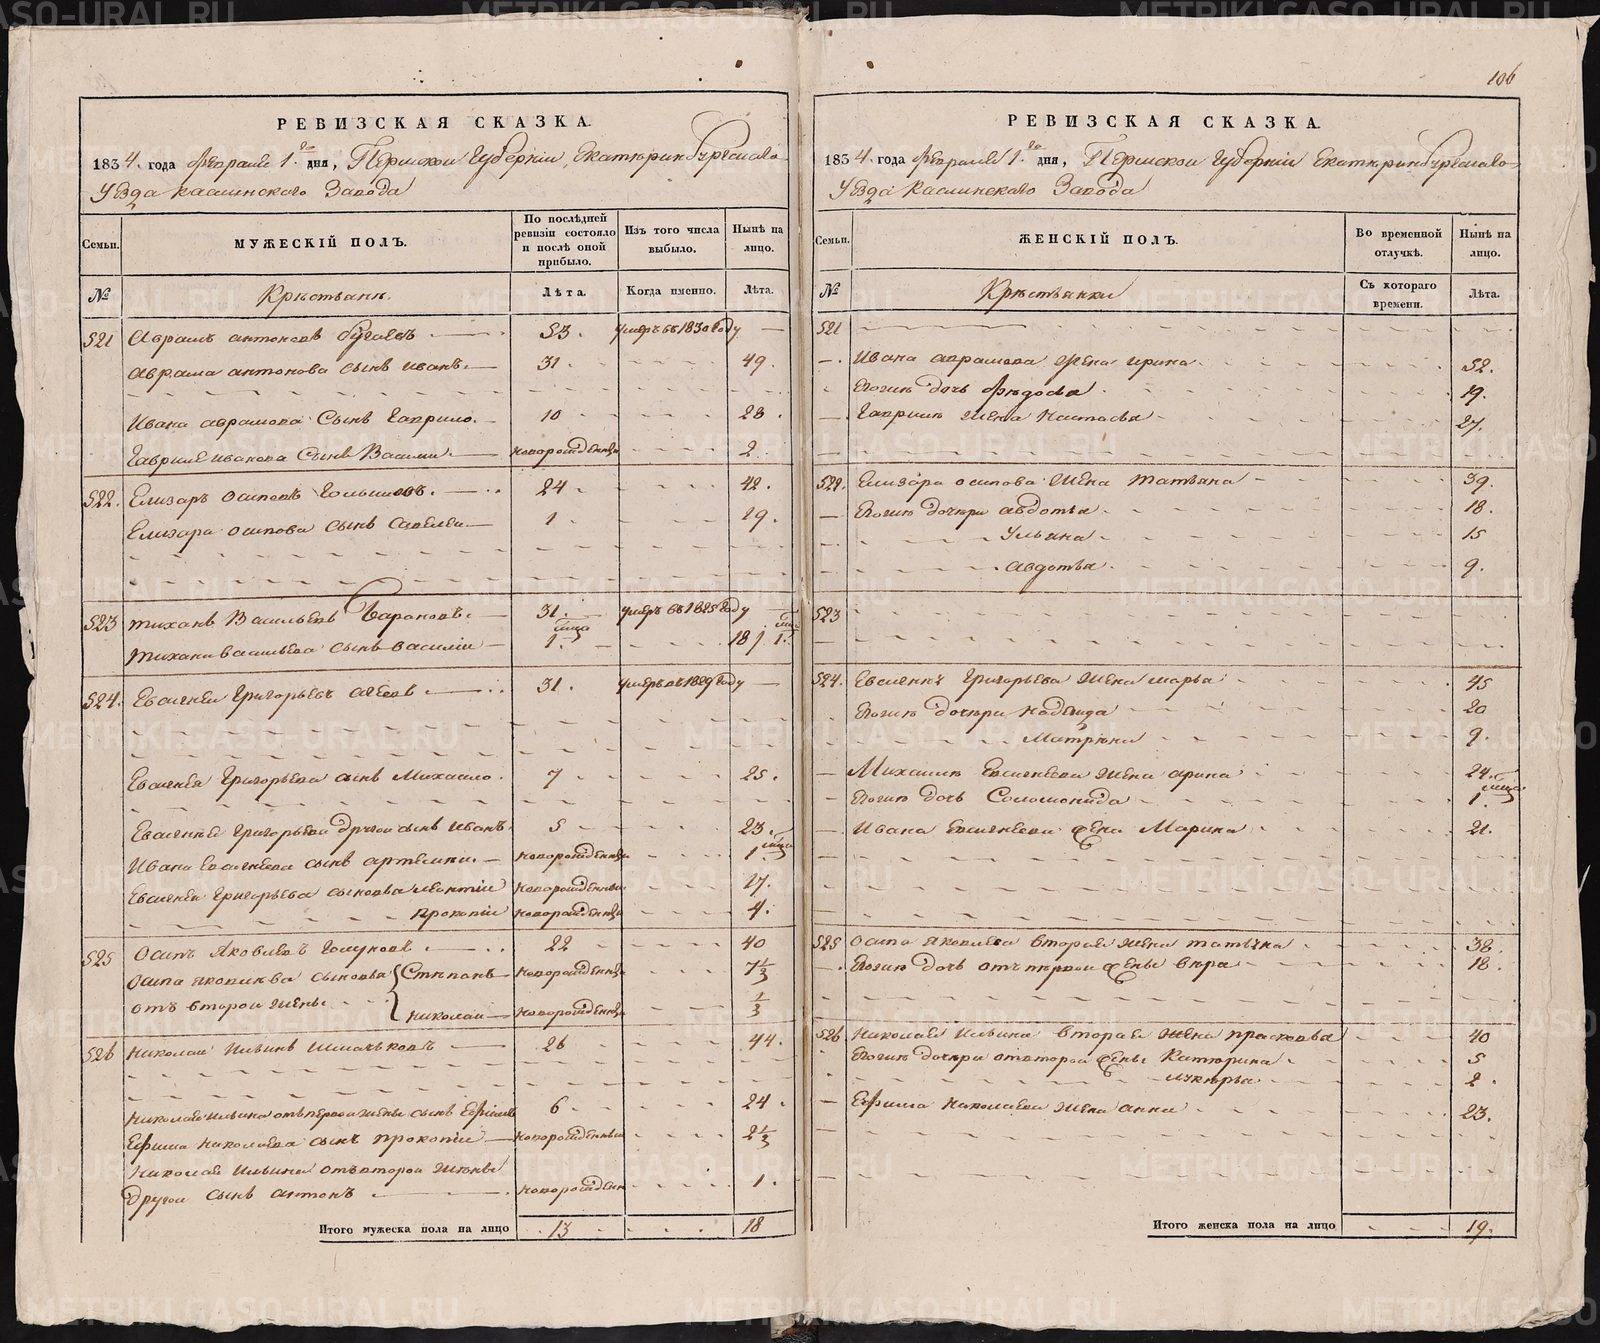 106
РЕВИЗСКАЯ СКАЗКА.
1834. года Февраля 1.го дня, Пермской Губерніи, Екатеринбургскаго
Уѣзда Каслинскаго Завода
Семьи.
МУЖЕСКІЙ ПОЛЪ.
По послѣдней ревизіи состояло и послѣ оной прибыло.
Изъ того числа выбыло.
Нынѣ на лицо.
№
Крестьяне.
Лѣта.
Когда именно.
Лѣта.
521 Аврамъ Антоновъ 53. умеръ въ 1830 году
Аврама Антонова сынъ Иванъ. 31 49.
Ивана Аврамова Сынъ Гаврило. 10 28.
Гаврила Иванова Сынъ Василій новорожденный 2.
522. Елизаръ Осиповъ 24 42.
Елизара Осипова сынъ Савелей 1 19.
523 Тиханъ Васильевъ 31. умеръ въ 1825 году
Тихана Васильева сынъ Василій 1. 18
524. Евсигней Григорьевъ 31. умеръ въ 1829 году
Евсигнея Григорьева сынъ Михайло. 7 25.
Евсигнея Григорьева другой сынъ Иванъ 5 23.
Ивана Евсигнеева сынъ Артемій новорожденный 1.
Евсигнея Григорьева сыновья Леонтій новорожденный 17.
Прокопій новорожденный 4.
525 Осипъ Яковлевъ Голуновъ 22 40
Осипа Яковлева сыновья Степанъ новорожденный 7 1/3
отъ второй жены Николай новорожденный 1/3
526 Николай Ильинъ 26 44.
Николая Ильина отъ первой жены сынъ Ефимъ 6 24
Ефима Николаева сынъ Прокопій новорожденный 2 1/3
Николая Ильина отъ второй жены
другой сынъ Антонъ новорожден 1.
Итого мужеска пола на лицо 13 18
РЕВИЗСКАЯ СКАЗКА.
1834. года Февраля 1.го дня, Пермской Губерніи Екатеринбургскаго
Уѣзда Каслинскаго Завода
Семьи.
ЖЕНСКІЙ ПОЛЪ.
Во временной отлучкѣ.
Нынѣ на лицо.
№
Крестьянки
Съ котораго времени.
Лѣта.
521
Ивана Аврамова жена Ирина 52.
Его же дочь Федосья 19.
Гаврила жена Настасья 27.
522. Елизара Осипова жена Татьяна 39.
Его же дочери Авдотья 18.
Ульяна 15
Авдотья 9.
523
524. Евсигнея Григорьева жена Марья 45
Его же дочери Надежда 20
Матрена 9.
Михайла Евсигнеева жена Арина 24.
Его же дочь Соломонида 1.
Ивана Евсигнеева жена Марина 21.
525 Осипа Яковлева вторая жена Татьяна 38.
Его же дочь отъ первой жены Вера 18.
526 Николая Ильина вторая жена Прасковья 40
Его же дочери отъ второй жены Катерина 5
Лукерья 2.
Ефима Николаева жена Анна 23.
Итого женска пола на лицо 19.
METRIKI.GASO-URAL.RU